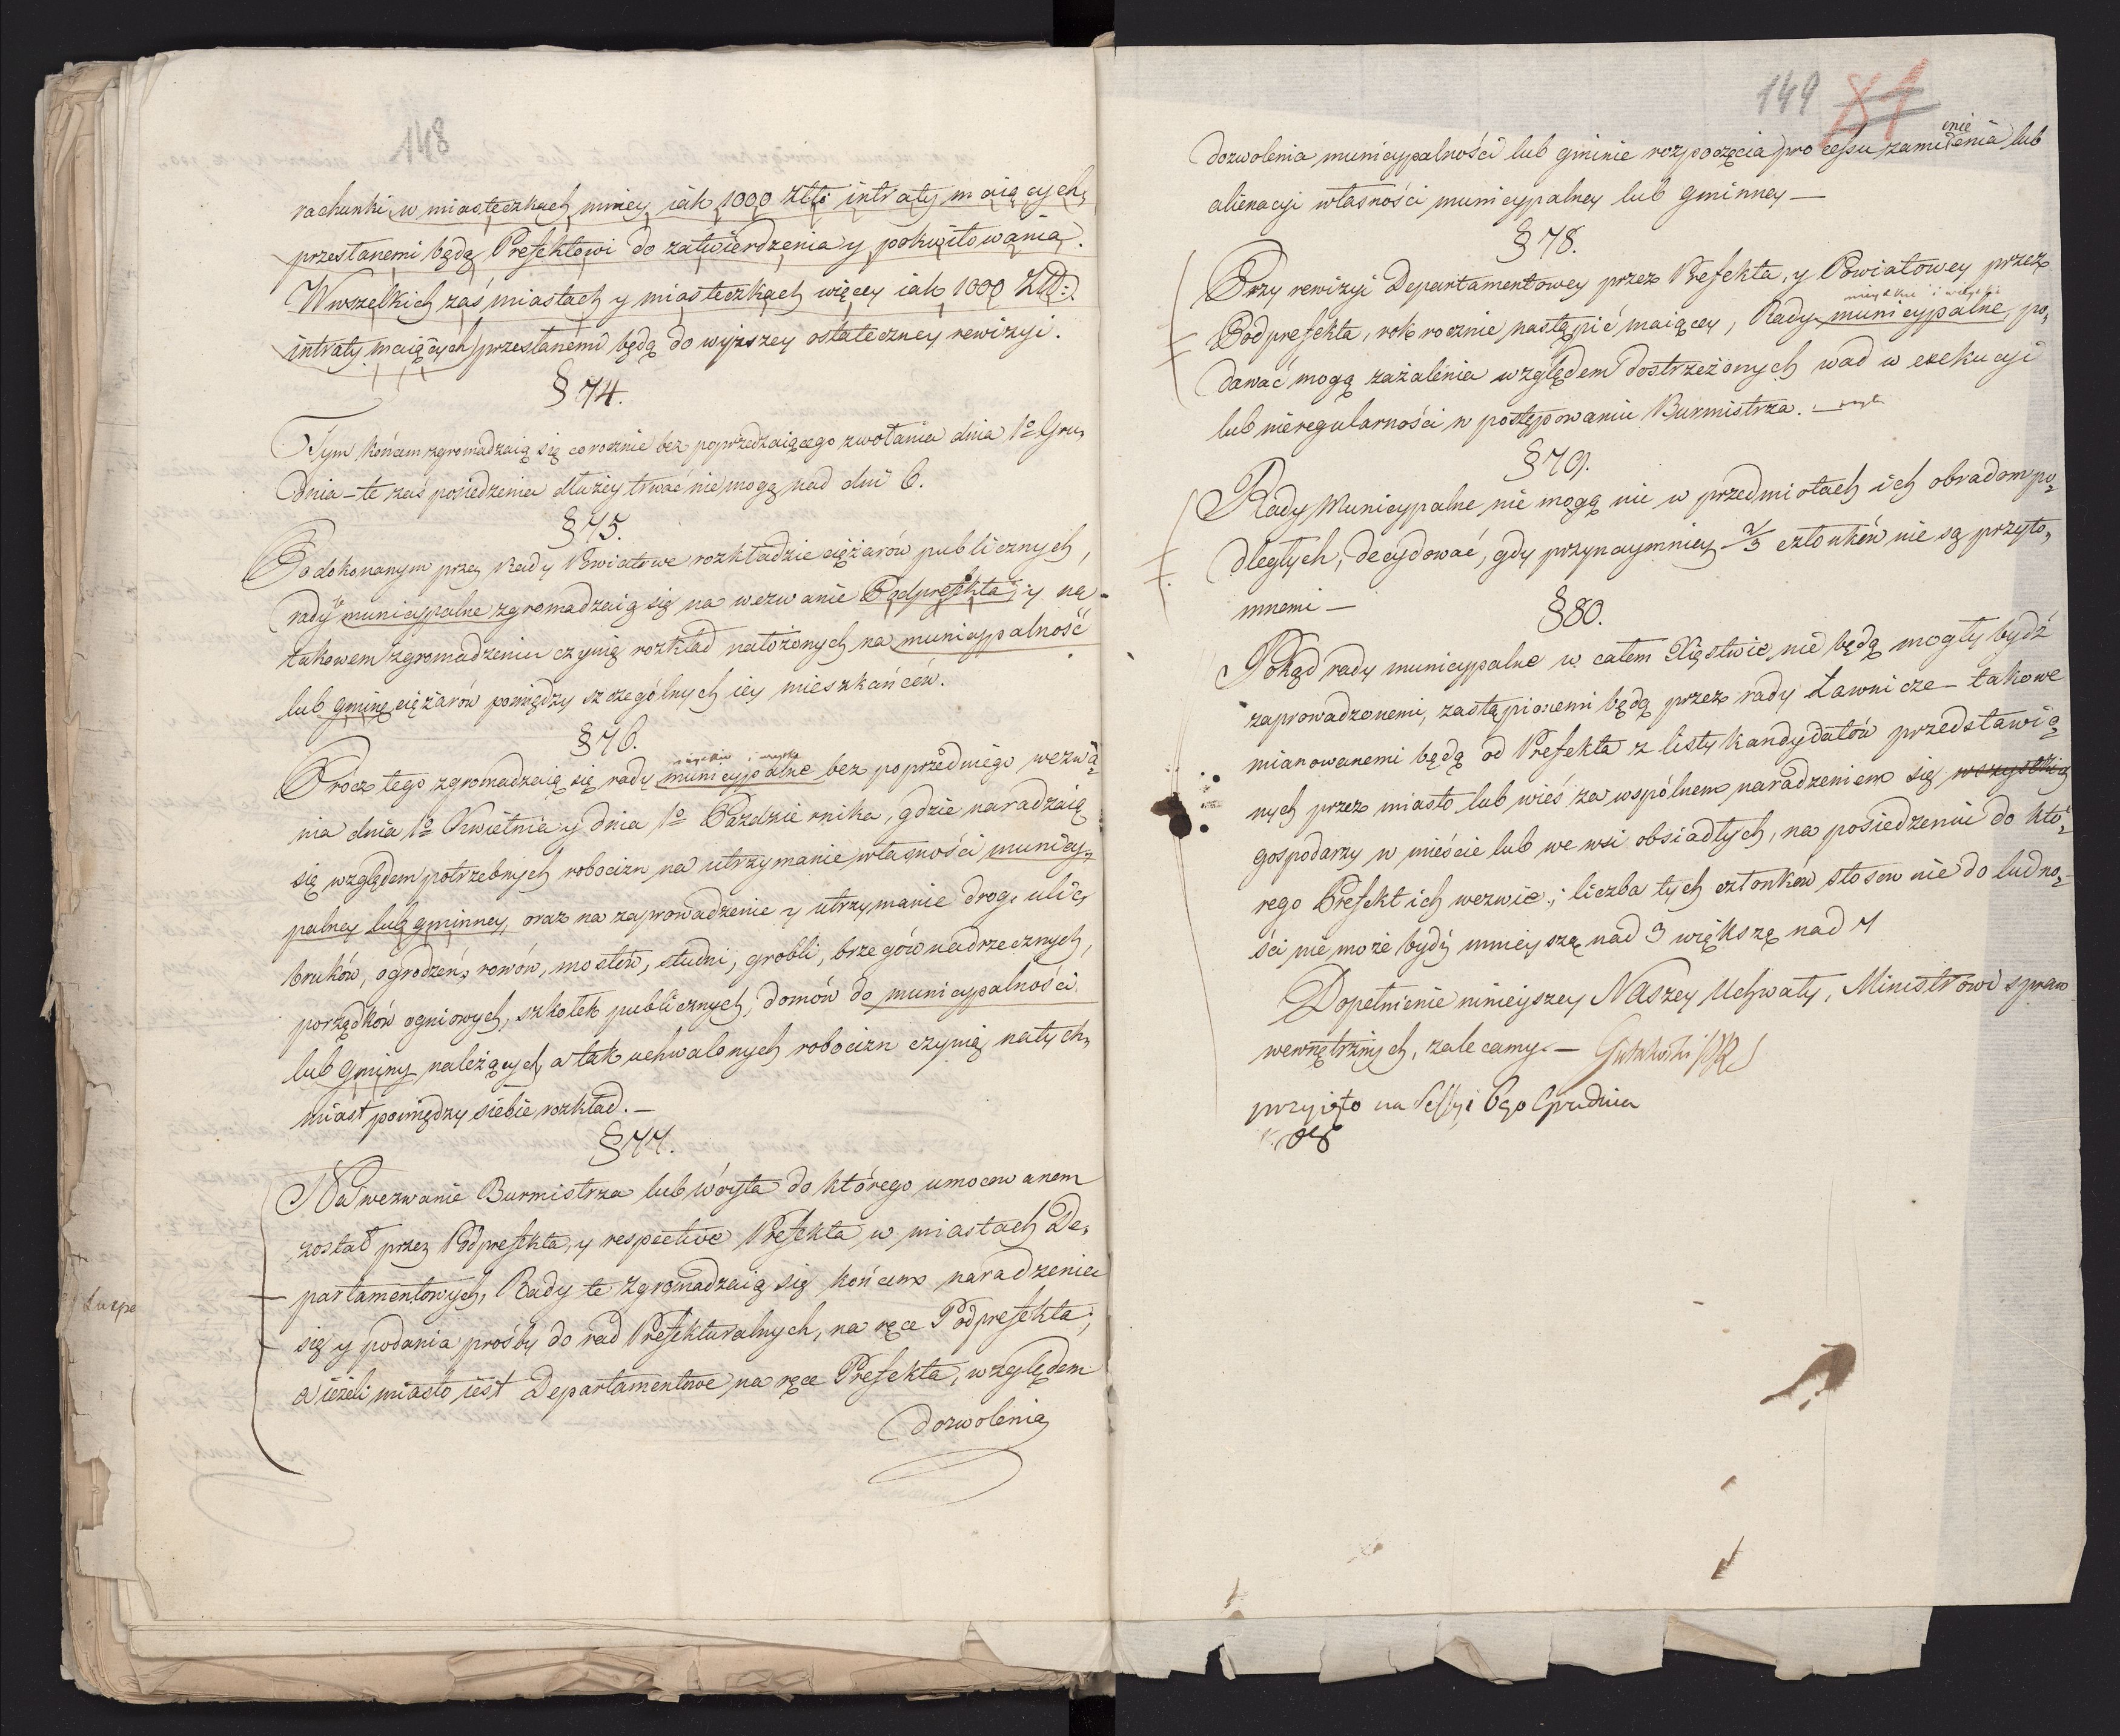 148
rachunki w miasteczkach mniey iak 1000 Złł: intraty maiących,
przesłanemi będą Prefektowi do zatwierdzenia y pokwitowania.
W wszelkich zaś miastach y miasteczkach więcey iak 1000 Złł:
intraty maiących przesłanemi będą do wyższey ostateczney rewizyi.
§ 74.
Tym końcem zgromadzaią się corocznie bez poprzedzaiącego zwołania dnia 1o Gru,
dnia – te zaś posiedzenia dłużey trwać nie mogą nad dni 6.
§ 75.
Po dokonanym przez Rady Powiatowe rozkładzie ciężarów publicznych,
rady municypalne zgromadzaią się na wezwanie Podprefekta, y na
takowem zgromadzeniu czynią rozkład nałożonych na municypalność
lub gminę ciężarów pomiędzy szczególnych iey mieszkańców.
§ 76.
mieyskie i
Prócz tego zgromadzaią się rady municypalne bez poprzedniego wezwa=
nia dnia 1o Kwietnia y dnia 1o Października, gdzie naradzaią
się względem potrzebnych robocizn na utrzymanie własności municy,
palney lub gminney, oraz na zaprowadzenie y utrzymanie drog, ulic,
bruków, ogrodzeń, rowów, mostów, studni, grobli, brzegów nadrzecznych,
porządków ogniowych, szkołek publicznych, domów do municypalności
lub Gminy należących, a tak uchwalonych robocizn czynią natych,
miast pomiędzy siebie rozkład. –
§ 77.
Na wezwanie Burmistrza lub wóyta do którego umocowanem
został przez Podprefekta, y respective Prefekta w miastach De,
partamentowych, Rady te zgromadzaią się końcem naradzenia
się y podania prośby do rad Prefekturalnych, na ręce Podprefekta;
a ieżeli miasto iest Departamentowe na ręce Prefekta, względem
dozwolenia
149 81
enie
dozwolenia municypalności lub gminie rozpoczęcia processu zamienia lub
alienacyi własności municypalney lub gminney –
§ 78.
Przy rewizyi Departamentowey przez Prefekta, y Powiatowey przez
mieyskie i wieyskie
Podprefekta, rok rocznie nastąpić maiącey, Rady municypalne, po,
dawać mogą zażalenia względem dostrzeżonych wad w exekucyi
lub nieregularności w postępowaniu Burmistrza. –
§ 79.
Rady Municypalne nie mogą nic w przedmiotach ich obradom po=
dległych, decydować, gdy przynaymniey 2/3 członków nie są przyto,
mnemi –
§ 80.
Pokąd rady municypalne w całem Xięstwie nie będą mogły bydź
zaprowadzonemi, zastąpionemi będą przez rady Ławnicze – takowe
mianowanemi będą od Prefekta z listy kandydatów przedstawio
nych przez miasto lub wieś za wspólnem naradzeniem się wszystkich
gospodarzy w mieście lub we wsi obsiadłych, na posiedzeniu do któ=
rego Prefekt ich wezwie; liczba tych członków stosownie do ludno=
ści nie może bydź mnieyszą nad 3 większą nad 7
Dopełnienie ninieyszey Naszey Uchwały, Ministrowi spraw
wewnętrznych, zalecamy. – Gutakowski PRS
przyięto na Sessyi 6go Grudnia